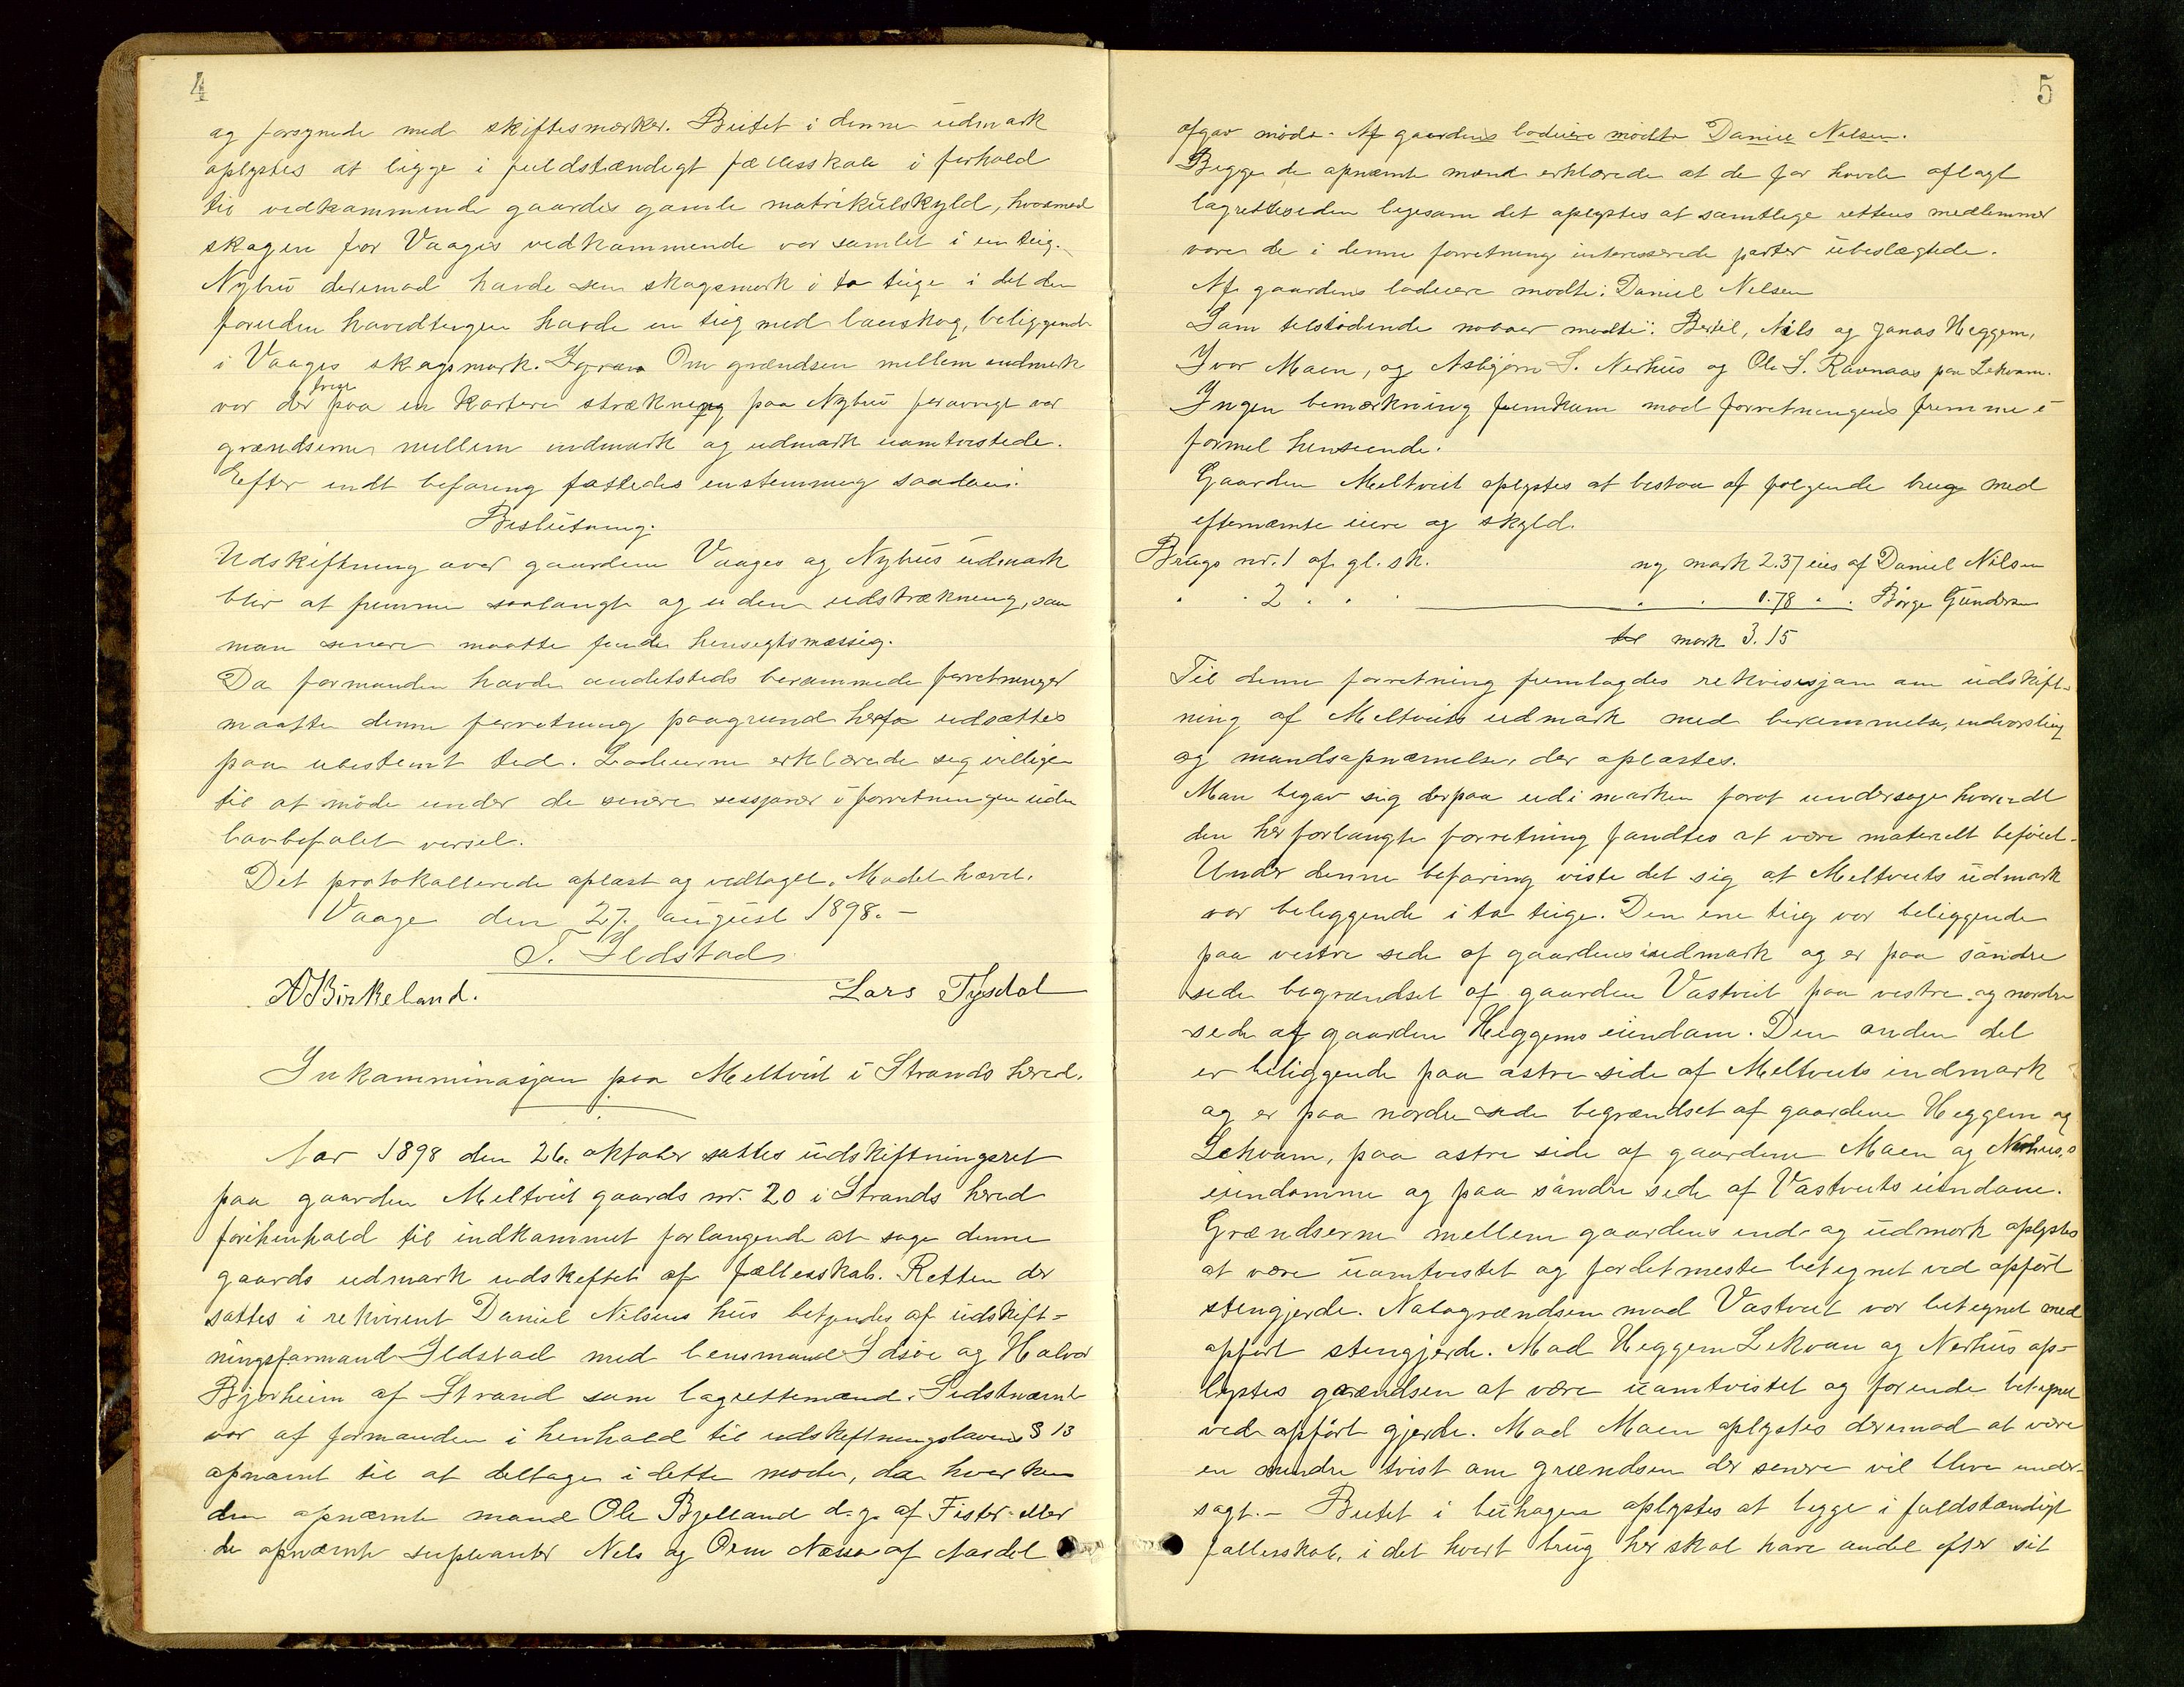 4
og forsynede med skiftesmærker. Beitet i denne udmark
oplystes at ligge i fuldstændigt fællesskab i forhold
til vedkommende gaardes gamle matrikulskyld, hvormed
skogen for Vaages vedkommende var samlet i en teig.
Nyhus derimod havde sin skogsmark i to teige i det den
foruden hovedteigen havde en teig med lauvskog, beliggende
i Vaages skogsmark. Om grændsen mellem indmark
var der tvist paa en kortere strækning paa Nyhus forøvrigt var
grændserne mellem indmark og udmark uomtvistede.
Efter endt befaring fattedes enstemmig saadan:
Beslutning.
Udskiftning over gaardene Vaages og Nyhus udmark
blir at fremme saalangt og i den udstrækning, som
man senere maatte finde hensigtsmæssig.
Da formanden havde andetsteds berammede forretninger
maatte denne forretning paagrund herfor udsættes
paa ubestemt tid. Lodeierne erklærede sig villige
til at møde under de senere sessjoner i forretningen uden
lovbefalet varsel.
Det protokollerede oplæst og vedtaget. Mødet hævet.
Vaage den 27. august 1898. -
T. Ildstad
A Birkeland. Lars Tysdal
Inkamminasjon paa Meltveit i Strands hered.
Aar 1898 den 26. oktober sattes udskiftningsret
paa gaarden Meltveit gaards nr. 20 i Strands hered
i henhold til indkommet forlangende at søge denne
gaards udmark udskiftet af fællesskab. Retten der
sattes i rekvirent Daniel Nilsens hus betjendes af udskift-
ningsformand Ildstad med lensmand Idsøe og Halvor
Bjørheim af Strand som lagrettemænd. Sidstnævnte
var af formanden i henhold til udskiftningslovens § 13
opnævnt til at deltage i dette møde, da hverken
den opnævnte mand Ole Bjelland d.y. af Fister eller
de opnævnte supleanter Nils og Orm Nessa af Aardal
5
afgav møde. Af gaardens lodeiere mødte Daniel Nilsen.
Begge de opnævnte mænd erklærede at de før havde aflagt
lagretteseden ligesom det oplystes at samtlige rettens medlemmer
vare de i denne forretning interesserede parter ubeslægtede.
Af gaardens lodeiere mødte: Daniel Nilsen
Som tilstødende naboer mødte: Bertil, Nils og Jonas Heggem,
Ivar Maen, og Asbjørn S. Nerhus og Ole S. Ravnaas paa Lekvam.
Ingen bemærkning fremkom mod forretningens fremme i
formel henseende.
Gaarden Meltveit oplystes at bestaa af følgende brug med
efternævnte eiere og skyld.
Brugs nr. 1 af gl. sk. ny mark 2.37 eies af Daniel Nilsen
" " 2 " " " " " 0.78 " " Børge Gundersen
mark 3.15
Til denne forretning fremlagdes rekvisisjon om udskift-
ning af Meltveits udmark med berammelse, indvarsling
og mandsopnævnelse, der oplæstes.
Man begav sig derpaa ud i marken forat undersøge hvorvidt
den her forlangte forretning fandtes at være materielt beføiet.
Under denne befaring viste det sig at Meltveits udmark
var beliggende i to teige. Den ene teig var beliggende
paa vestre side af gaardens indmark og er paa søndre
side begrændset af gaarden Vastveit paa vestre og nordre
side af gaarden Heggems eiendom. Den anden del
er beliggende paa østre side af Meltveits indmark
og er paa nordre side begrændset af gaardene Heggem og
Lekvam, paa østre side af gaardene Maen og Nerhus,s
eiendomme og paa søndre side af Vastveits eiendom.
Grændserne mellem gaardens ind- og udmark oplystes
at være uomtvistet og fordetmeste betegnet ved opført
stengjerde. Nabogrændsen mod Vastveit var betegnet med
opført stengjerde. Mod Heggem Lekvam og Nerhus op-
lystes grændsen at være uomtvistet og forende betegnet
ved opført gjerde. Mod Maen oplystes derimod at være
en mindre tvist om grændsen der senere vil blive under-
søgt. - Beitet i beithagen oplystes at ligge i fuldstændigt
fællesskab, i det hvert brug her skal have andel efter sit